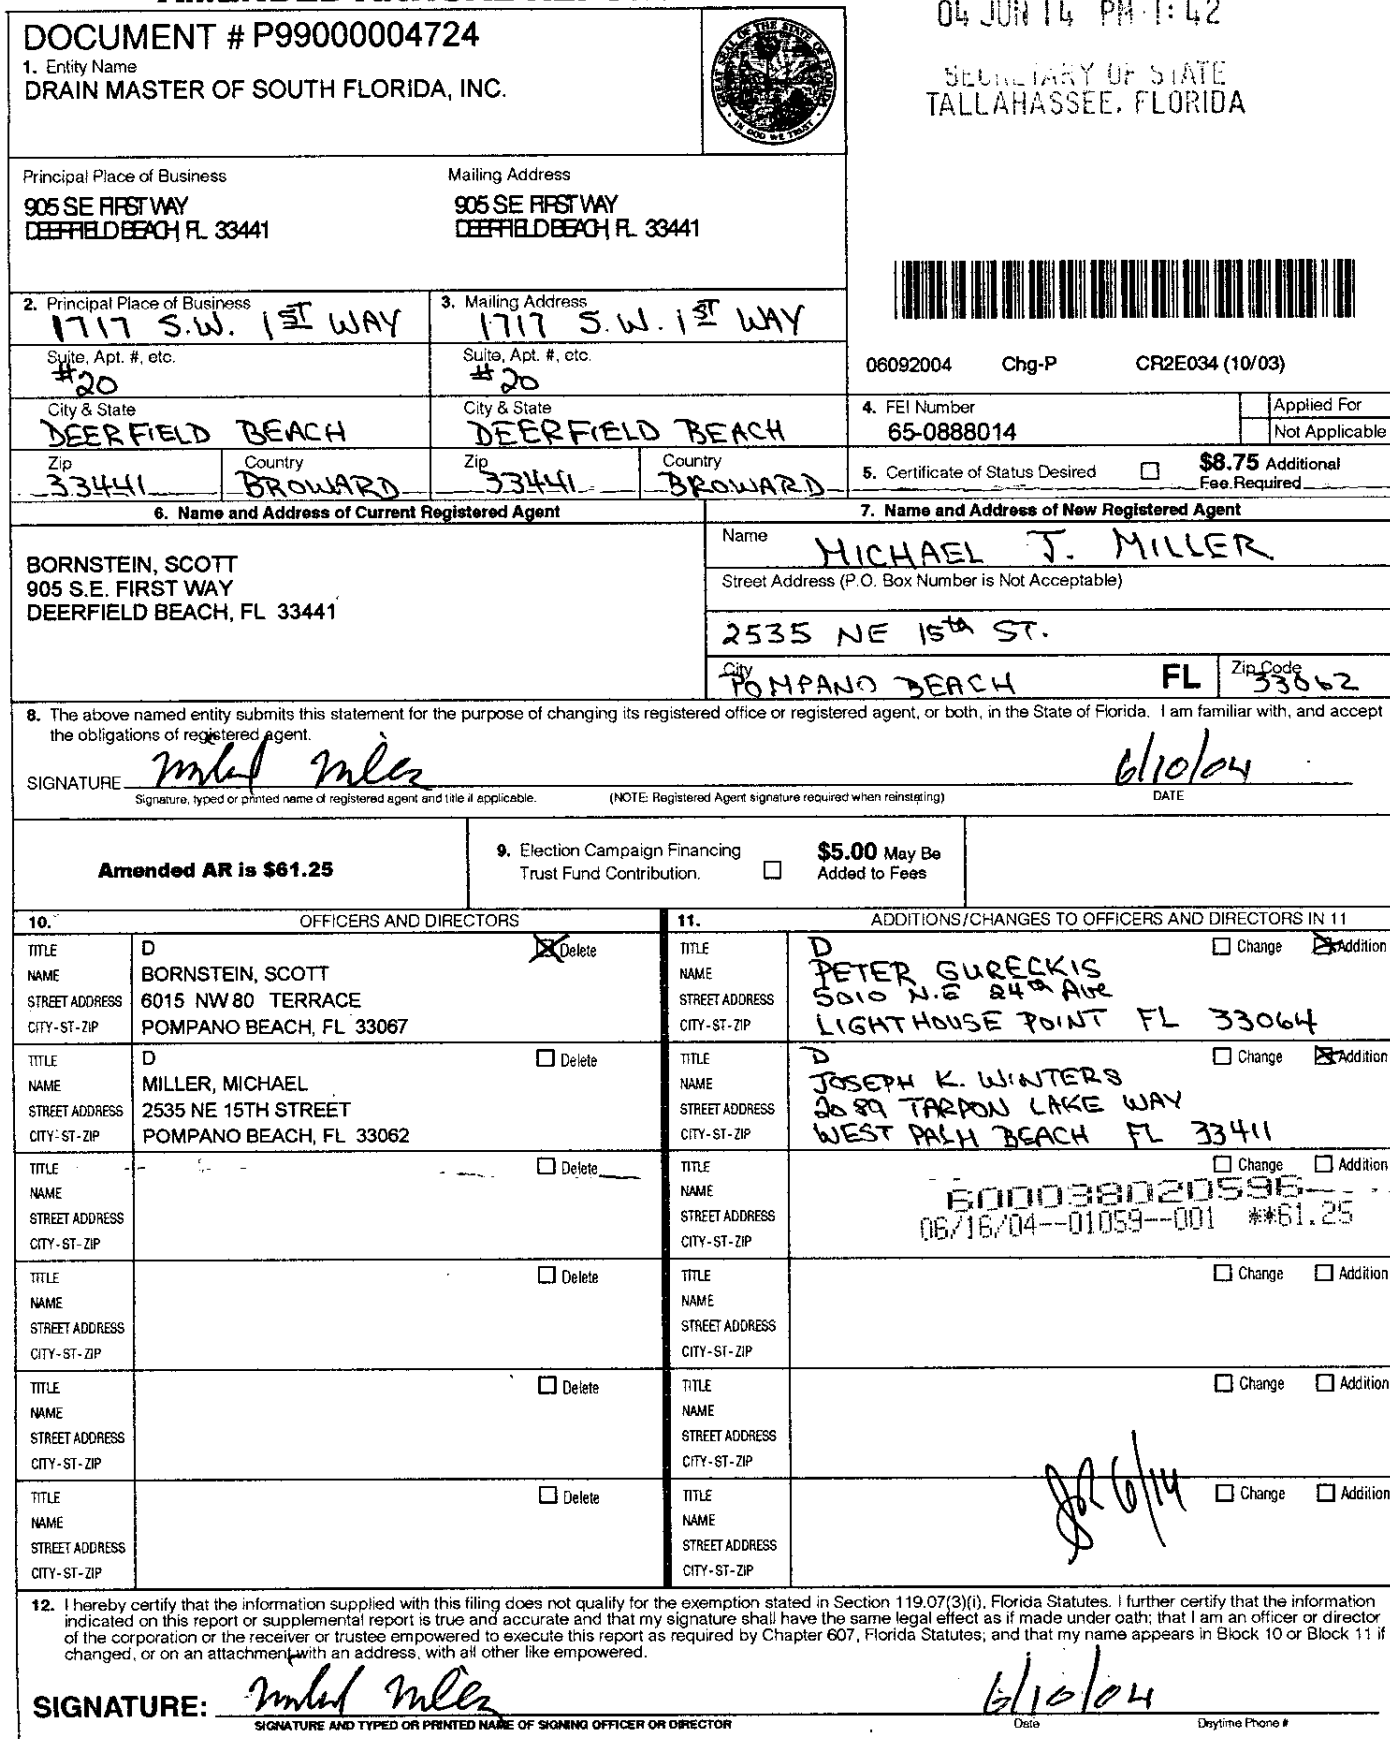 04 JUN 14 PM 1:42
SECRETARY OF STATE
TALLAHASSEE, FLORIDA
DOCUMENT # P99000004724
1. Entity Name
DRAIN MASTER OF SOUTH FLORIDA, INC.
GREAT SEAL OF THE STATE OF FLORIDA
IN GOD WE TRUST
Principal Place of Business
905 SE FIRST WAY
DEERFIELD BEACH, FL 33441
Mailing Address
905 SE FIRST WAY
DEERFIELD BEACH, FL 33441
2. Principal Place of Business
1717 S.W. 1ST WAY
Suite, Apt. #, etc.
#20
City & State
DEERFIELD BEACH
Zip
33441
Country
BROWARD
3. Mailing Address
1717 S.W. 1ST WAY
Suite, Apt. #, etc.
#20
City & State
DEERFIELD BEACH
Zip
33441
Country
BROWARD
06092004 Chg-P CR2E034 (10/03)
4. FEI Number
65-0888014
Applied For
Not Applicable
5. Certificate of Status Desired
$8.75 Additional
Fee Required
6. Name and Address of Current Registered Agent
BORNSTEIN, SCOTT
905 S.E. FIRST WAY
DEERFIELD BEACH, FL 33441
7. Name and Address of New Registered Agent
Name
MICHAEL J. MILLER
Street Address (P.O. Box Number is Not Acceptable)
2535 NE 15th ST.
City
POMPANO BEACH
FL
Zip Code
33062
8. The above named entity submits this statement for the purpose of changing its registered office or registered agent, or both, in the State of Florida. I am familiar with, and accept
the obligations of registered agent.
SIGNATURE
6/10/04
Signature, typed or printed name of registered agent and title if applicable.
(NOTE: Registered Agent signature required when reinstating)
DATE
Amended AR is $61.25
9. Election Campaign Financing
Trust Fund Contribution.
$5.00 May Be
Added to Fees
10. OFFICERS AND DIRECTORS
TITLE D Delete
NAME BORNSTEIN, SCOTT
STREET ADDRESS 6015 NW 80 TERRACE
CITY-ST-ZIP POMPANO BEACH, FL 33067
TITLE D Delete
NAME MILLER, MICHAEL
STREET ADDRESS 2535 NE 15TH STREET
CITY-ST-ZIP POMPANO BEACH, FL 33062
TITLE Delete
NAME
STREET ADDRESS
CITY-ST-ZIP
TITLE Delete
NAME
STREET ADDRESS
CITY-ST-ZIP
TITLE Delete
NAME
STREET ADDRESS
CITY-ST-ZIP
TITLE Delete
NAME
STREET ADDRESS
CITY-ST-ZIP
11. ADDITIONS/CHANGES TO OFFICERS AND DIRECTORS IN 11
TITLE D Change Addition
NAME PETER GURECKIS
STREET ADDRESS 5010 N.E 24th Ave
CITY-ST-ZIP LIGHTHOUSE POINT FL 33064
TITLE D Change Addition
NAME JOSEPH K. WINTERS
STREET ADDRESS 2089 TARPON LAKE WAY
CITY-ST-ZIP WEST PALM BEACH FL 33411
TITLE Change Addition
NAME 600038020596
STREET ADDRESS 06/16/04--01059--001 **61.25
CITY-ST-ZIP
TITLE Change Addition
NAME
STREET ADDRESS
CITY-ST-ZIP
TITLE Change Addition
NAME
STREET ADDRESS
CITY-ST-ZIP
6/14
TITLE Change Addition
NAME
STREET ADDRESS
CITY-ST-ZIP
12. I hereby certify that the information supplied with this filing does not qualify for the exemption stated in Section 119.07(3)(i), Florida Statutes. I further certify that the information
indicated on this report or supplemental report is true and accurate and that my signature shall have the same legal effect as if made under oath; that I am an officer or director
of the corporation or the receiver or trustee empowered to execute this report as required by Chapter 607, Florida Statutes; and that my name appears in Block 10 or Block 11 if
changed, or on an attachment with an address, with all other like empowered.
SIGNATURE:
6/10/04
SIGNATURE AND TYPED OR PRINTED NAME OF SIGNING OFFICER OR DIRECTOR
Date
Daytime Phone #